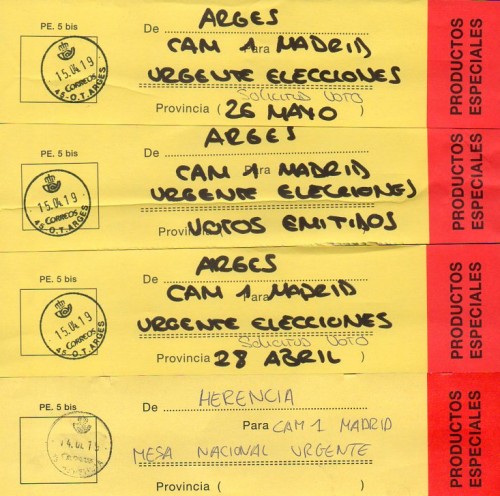 PE. 5 bis
De ARGES
CAM 1 Para MADRID
URGENTE ELECCIONES
Solicitud Voto
Provincia ( 26 MAYO )
15.04.19
CORREOS
45-O.T. ARGES
PRODUCTOS
ESPECIALES
PE. 5 bis
De ARGES
CAM 1 Para MADRID
URGENTE ELECCIONES
VOTOS EMITIDOS
15.04.19
CORREOS
45-O.T. ARGES
PRODUCTOS
ESPECIALES
PE. 5 bis
De ARGES
CAM 1 Para MADRID
URGENTE ELECCIONES
Solicitud Voto
Provincia ( 28 ABRIL )
15.04.19
CORREOS
45-O.T. ARGES
PRODUCTOS
ESPECIALES
PE. 5 bis
De HERENCIA
Para CAM 1 MADRID
MESA NACIONAL URGENTE
Provincia ( )
CORREOS
PRODUCTOS
ESPECIALES